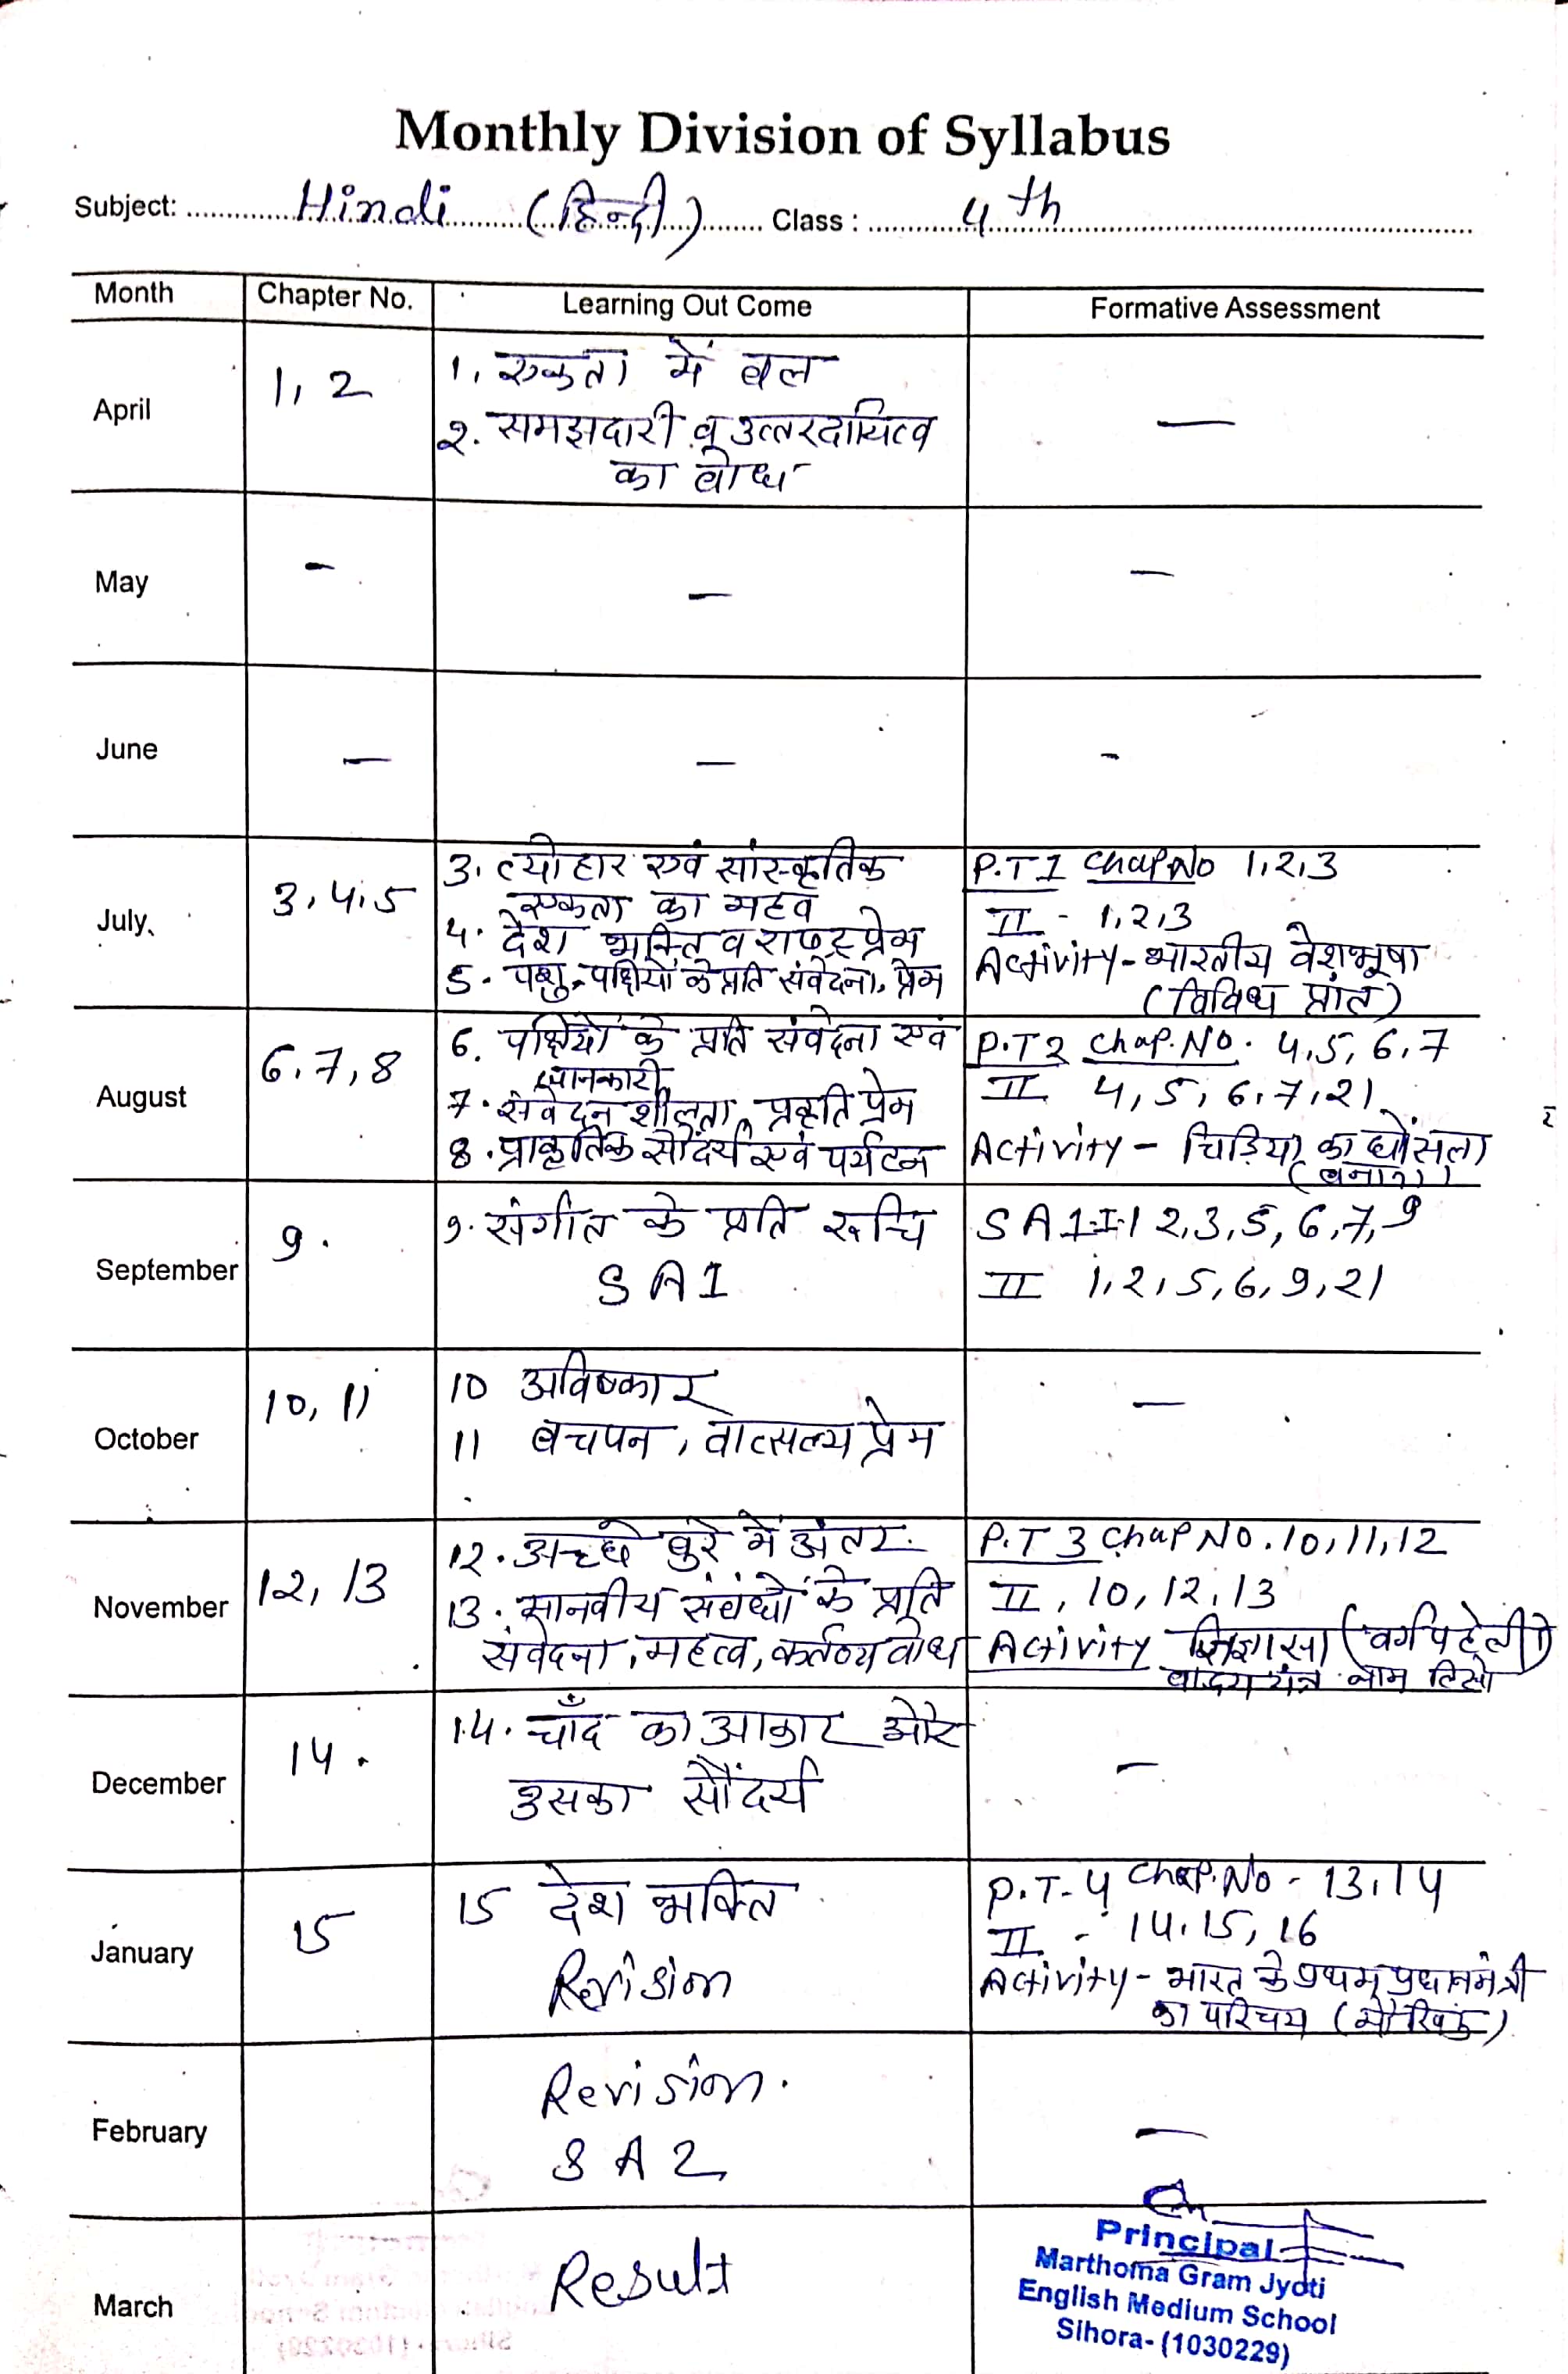 Monthly Division of Syllabus
Subject: Hindi (हिन्दी) Class : 4th
Month Chapter No. Learning Out Come Formative Assessment
April 1, 2 1. एकता में बल —
2. समझदारी व उत्तरदायित्व
का बोध
May - — —
June — — -
July 3, 4, 5 3. त्योहार एवं सांस्कृतिक P.T 1 Chap No 1,2,3
एकता का महत्व II - 1,2,3
4. देश भक्ति व राष्ट्र प्रेम Activity - भारतीय वेशभूषा
5. पशु-पक्षियों के प्रति संवेदना, प्रेम (विविध प्रांत)
August 6, 7, 8 6. पक्षियों के प्रति संवेदना एवं P.T 2 Chap. No. 4, 5, 6, 7
जानकारी II 4, 5, 6, 7, 21
7. संवेदन शीलता, प्रकृति प्रेम
8. प्राकृतिक सौंदर्य एवं पर्यटन Activity - चिड़िया का घोंसला
September 9. 9. संगीत के प्रति रूचि S A 1-I-1 2,3,5,6,7,9
S A 1 II 1,2,5,6,9,21
October 10, 11 10 अविष्कार —
11 बचपन, वात्सल्य प्रेम
November 12, 13 12. अच्छे बुरे में अंतर P.T 3 Chap NO. 10,11,12
13. मानवीय संबंधों के प्रति II, 10, 12, 13
संवेदना, महत्व, कर्तव्य बोध Activity जिज्ञासा (वर्ग पहेली)
नाम
December 14. 14. चाँद का आकार और —
उसका सौंदर्य
January 15 15 देश भक्ति P.T-4 Chap. No - 13,14
Revision II - 14, 15, 16
Activity - भारत के प्रथम प्रधानमंत्री
का परिचय (मौखिक)
February Revision. —
S A 2
March Result
Principal
Marthoma Gram Jyoti
English Medium School
Sihora- (1030229)